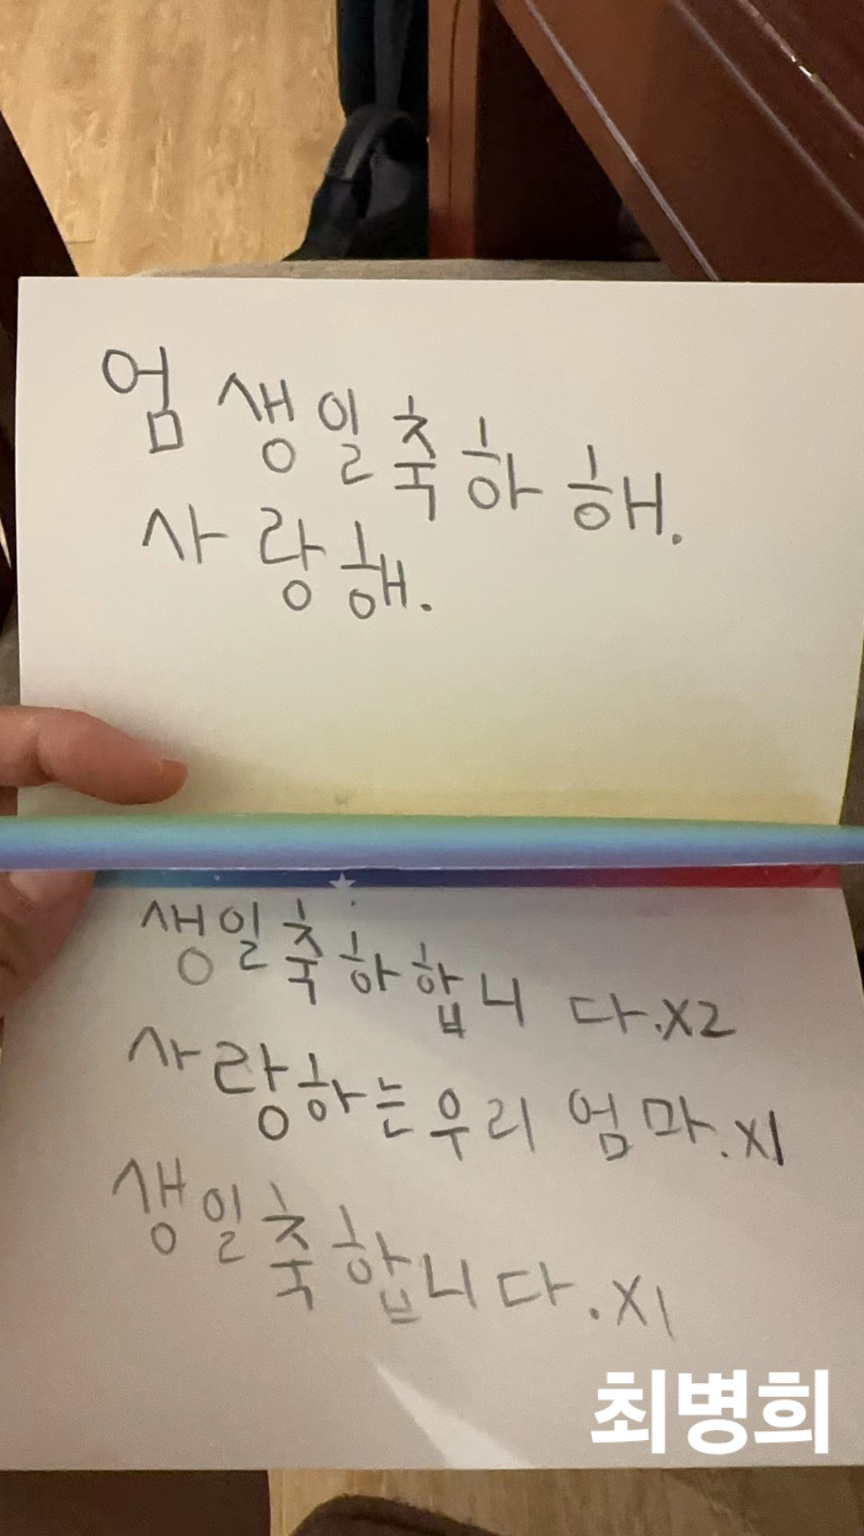 엄 생일축하 해.
사랑해.
생일축하합니 다.X2
사랑하는우리 엄마.X1
생일축합니다.X1
최병희